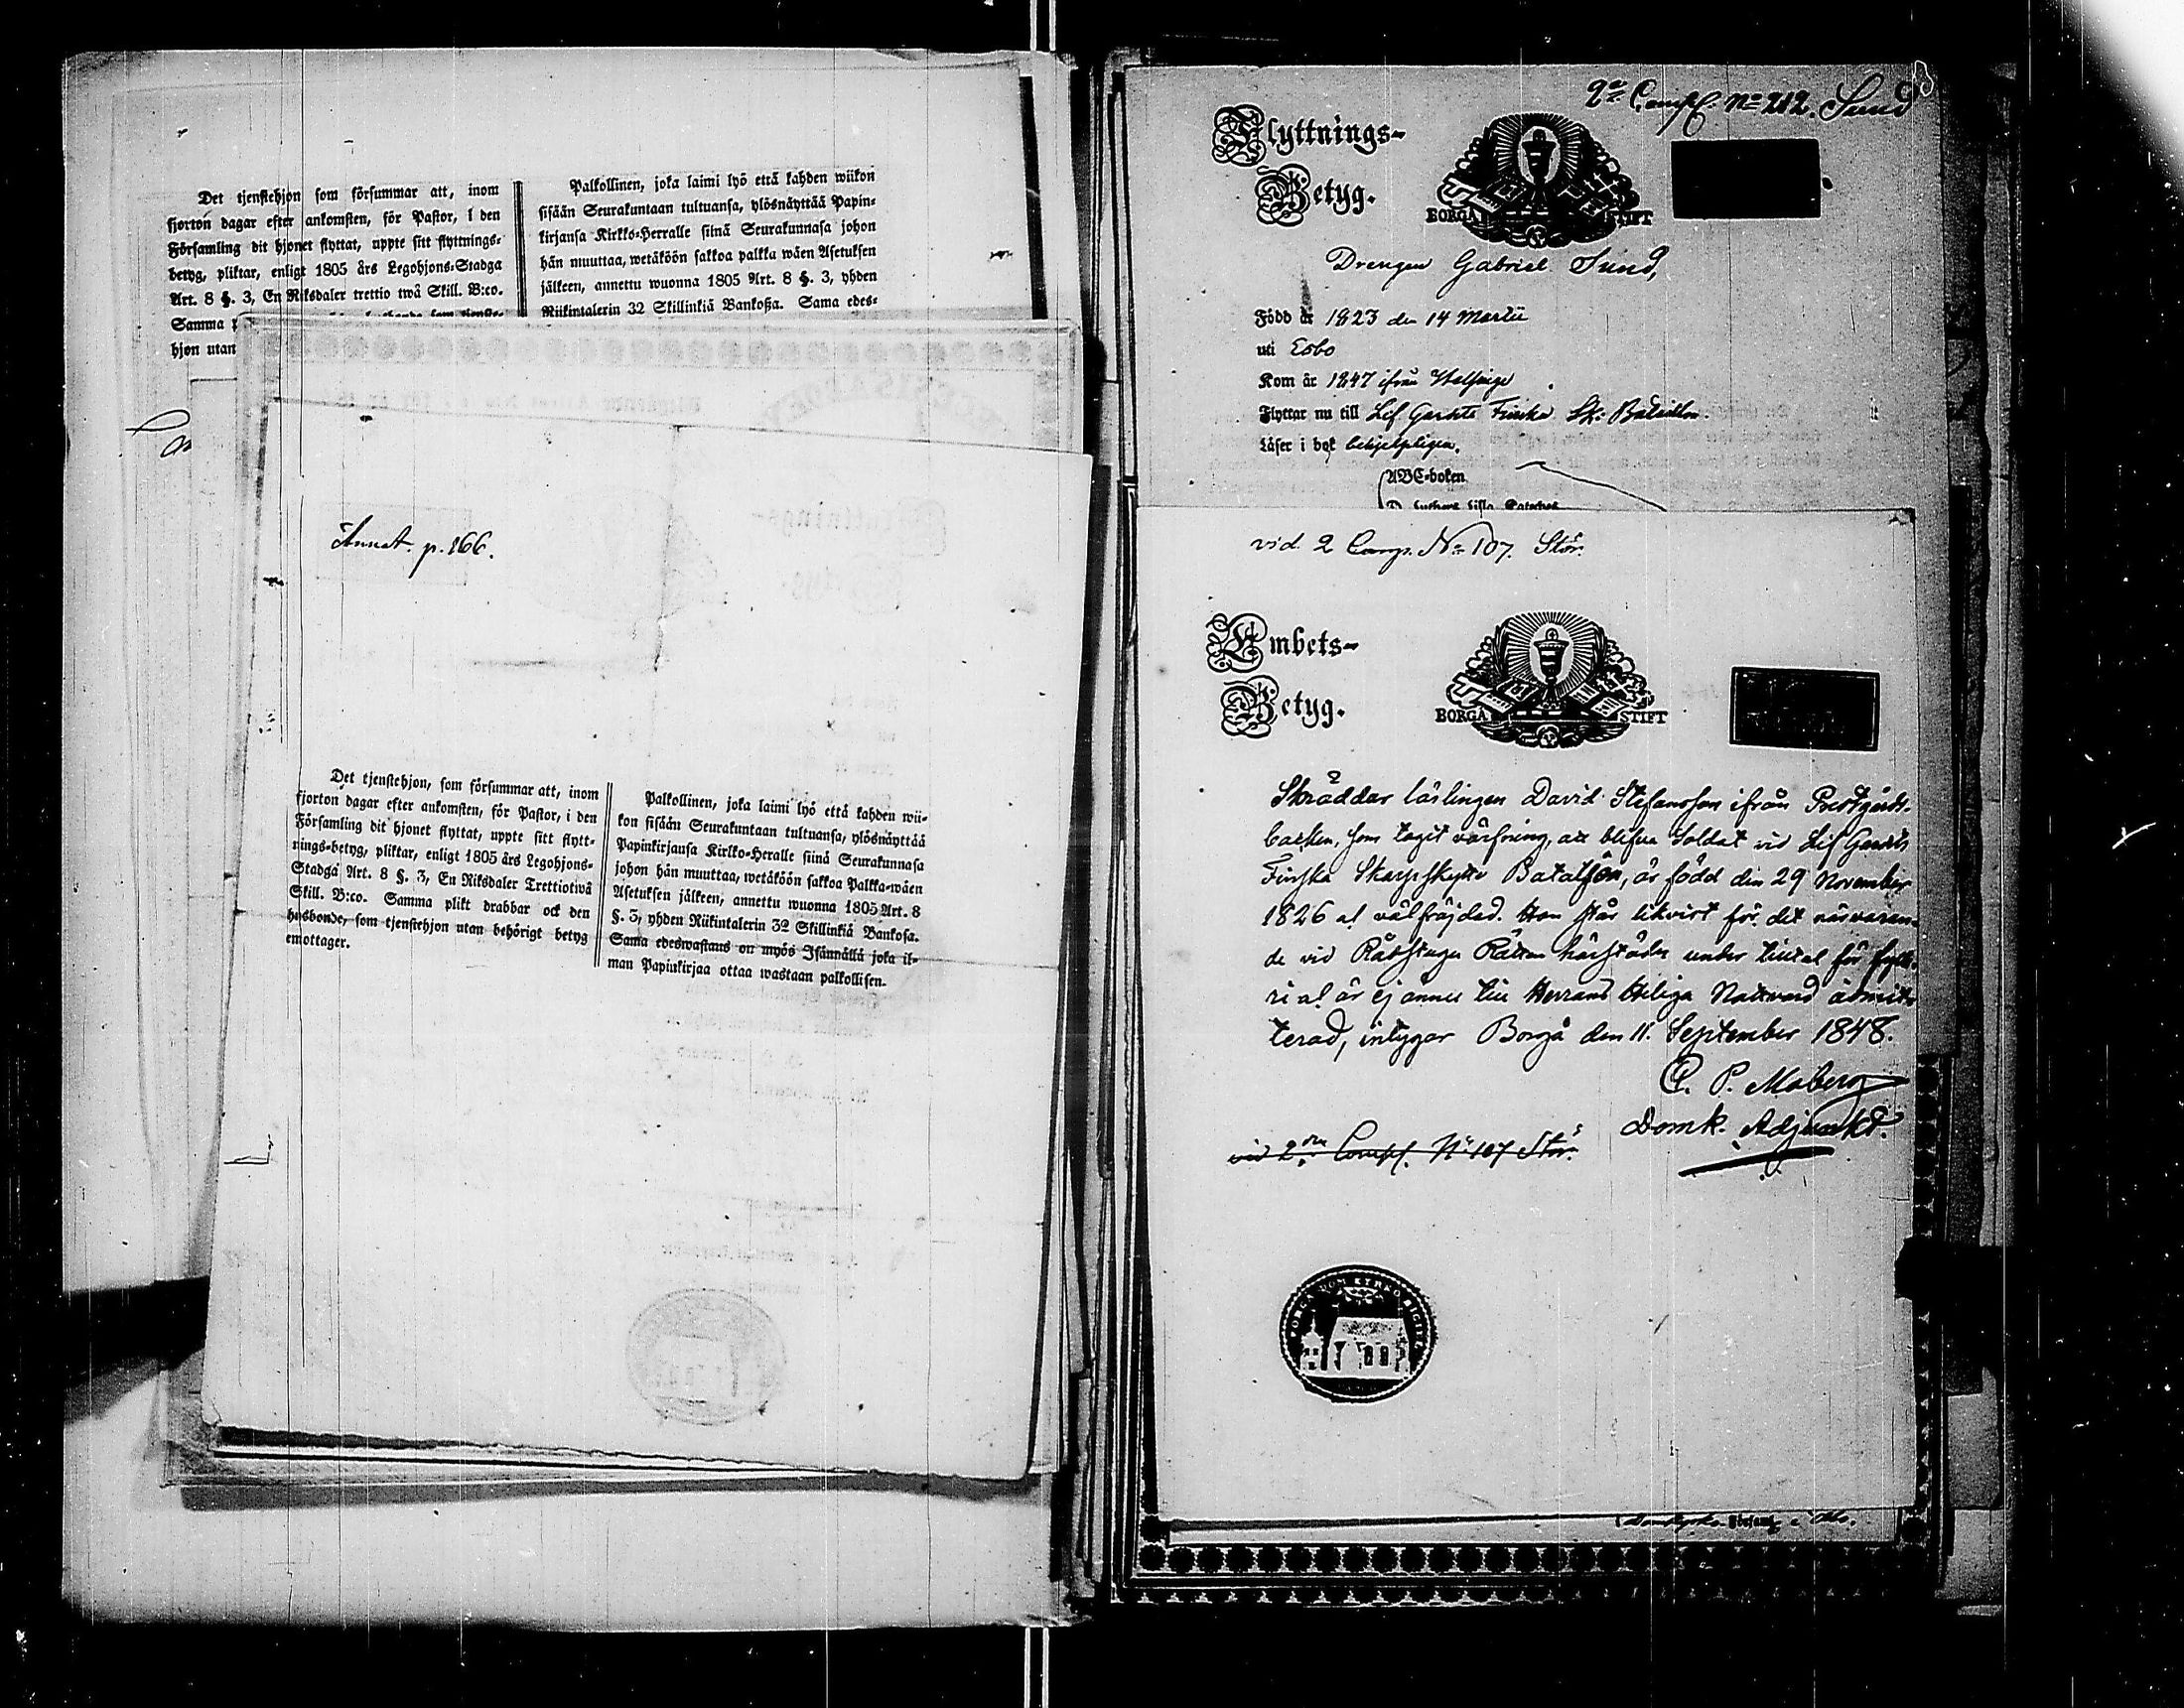 Det tjenstehjon som försummar att, inom
fjorton dagar efter ankomsten, för Pastor, i den
Församling dit hjonet flyttat, uppte sitt flyttnings-
betyg, pliktar, enligt 1805 års Legohjons-Stadga
Art. 8 §. 3, En Riksdaler trettio twå Skill. B:co.
Samma
hjon utan
Palkollinen, joka laimi lyö että kahden wiikon
sisään Seurakuntaan tultuansa, ylösnäyttää Papin-
kirjansa Kirkko-Herralle siinä Seurakunnasa johon
hän muuttaa, wetäköön sakkoa palkka wäen Asetuksen
jälkeen, annettu wuonna 1805 Art. 8 §. 3, yhden
Riikintalerin 32 Skillinkiä Bankoßa. Sama edes-
Annot. p. 166.
Det tjenstehjon, som försummar att, inom
fjorton dagar efter ankomsten, för Pastor, i den
Församling dit hjonet flyttat, uppte sitt flytt-
nings-betyg, pliktar, enligt 1805 års Legohjons-
Stadga Art. 8 §. 3, En Riksdaler Trettiotwå
Skill. B:co. Samma plikt drabbar ock den
husbonde, som tjenstehjon utan behörigt betyg
emottager.
Palkollinen, joka laimi lyö että kahden wii-
kon sisään Seurakuntaan tultuansa, ylösnäyttää
Papinkirjansa Kirkko-Heralle siinä Seurakunnasa
johon hän muuttaa, wetäköön sakkoa Palkka-wäen
Asetuksen jälkeen, annettu wuonna 1805 Art. 8
§. 3, yhden Riikintalerin 32 Skillinkiä Bankosa.
Sama edeswastaus on myös Isännällä joka il-
man Papinkirjaa ottaa wastaan palkollisen.
2dra Comp. No 212. Sund
Flyttnings-
Betyg.
BORGÅ STIFT
Drengen Gabriel Sund,
Född år 1823 den 14 Martii
uti Esbo
Kom år 1847 ifrån Helsinge
Flyttar nu till Lif Gardets Finska Sk: Bataillon.
Läser i bok behjelpligen.
ABC-boken
D. Luthers lilla Cateches
vid 2 Comp. No 107. Stör.
Embets-
Betyg.
BORGÅ STIFT
Skräddar lärlingen David Stefansson ifrån Prestgårds-
backen, som tagit värfning, att blifva Soldat vid Lif Gardets
Finska Skarpskytte Bataljon, är född den 29 November
1826 al välfräjdad. Han står likvist för det närvaran-
de vid Rådstugu Rätten härstädes under tiltal för fylle-
ri al är ej ännu till Herrans Heliga Nattvard admit-
terad, intygar Borgå den 11. September 1848.
C. P. Moberg
Domk. Adjunkt.
vid 2dra Comp. No 107 Stör.
BORGÅ DOM KYRKO SIGILL